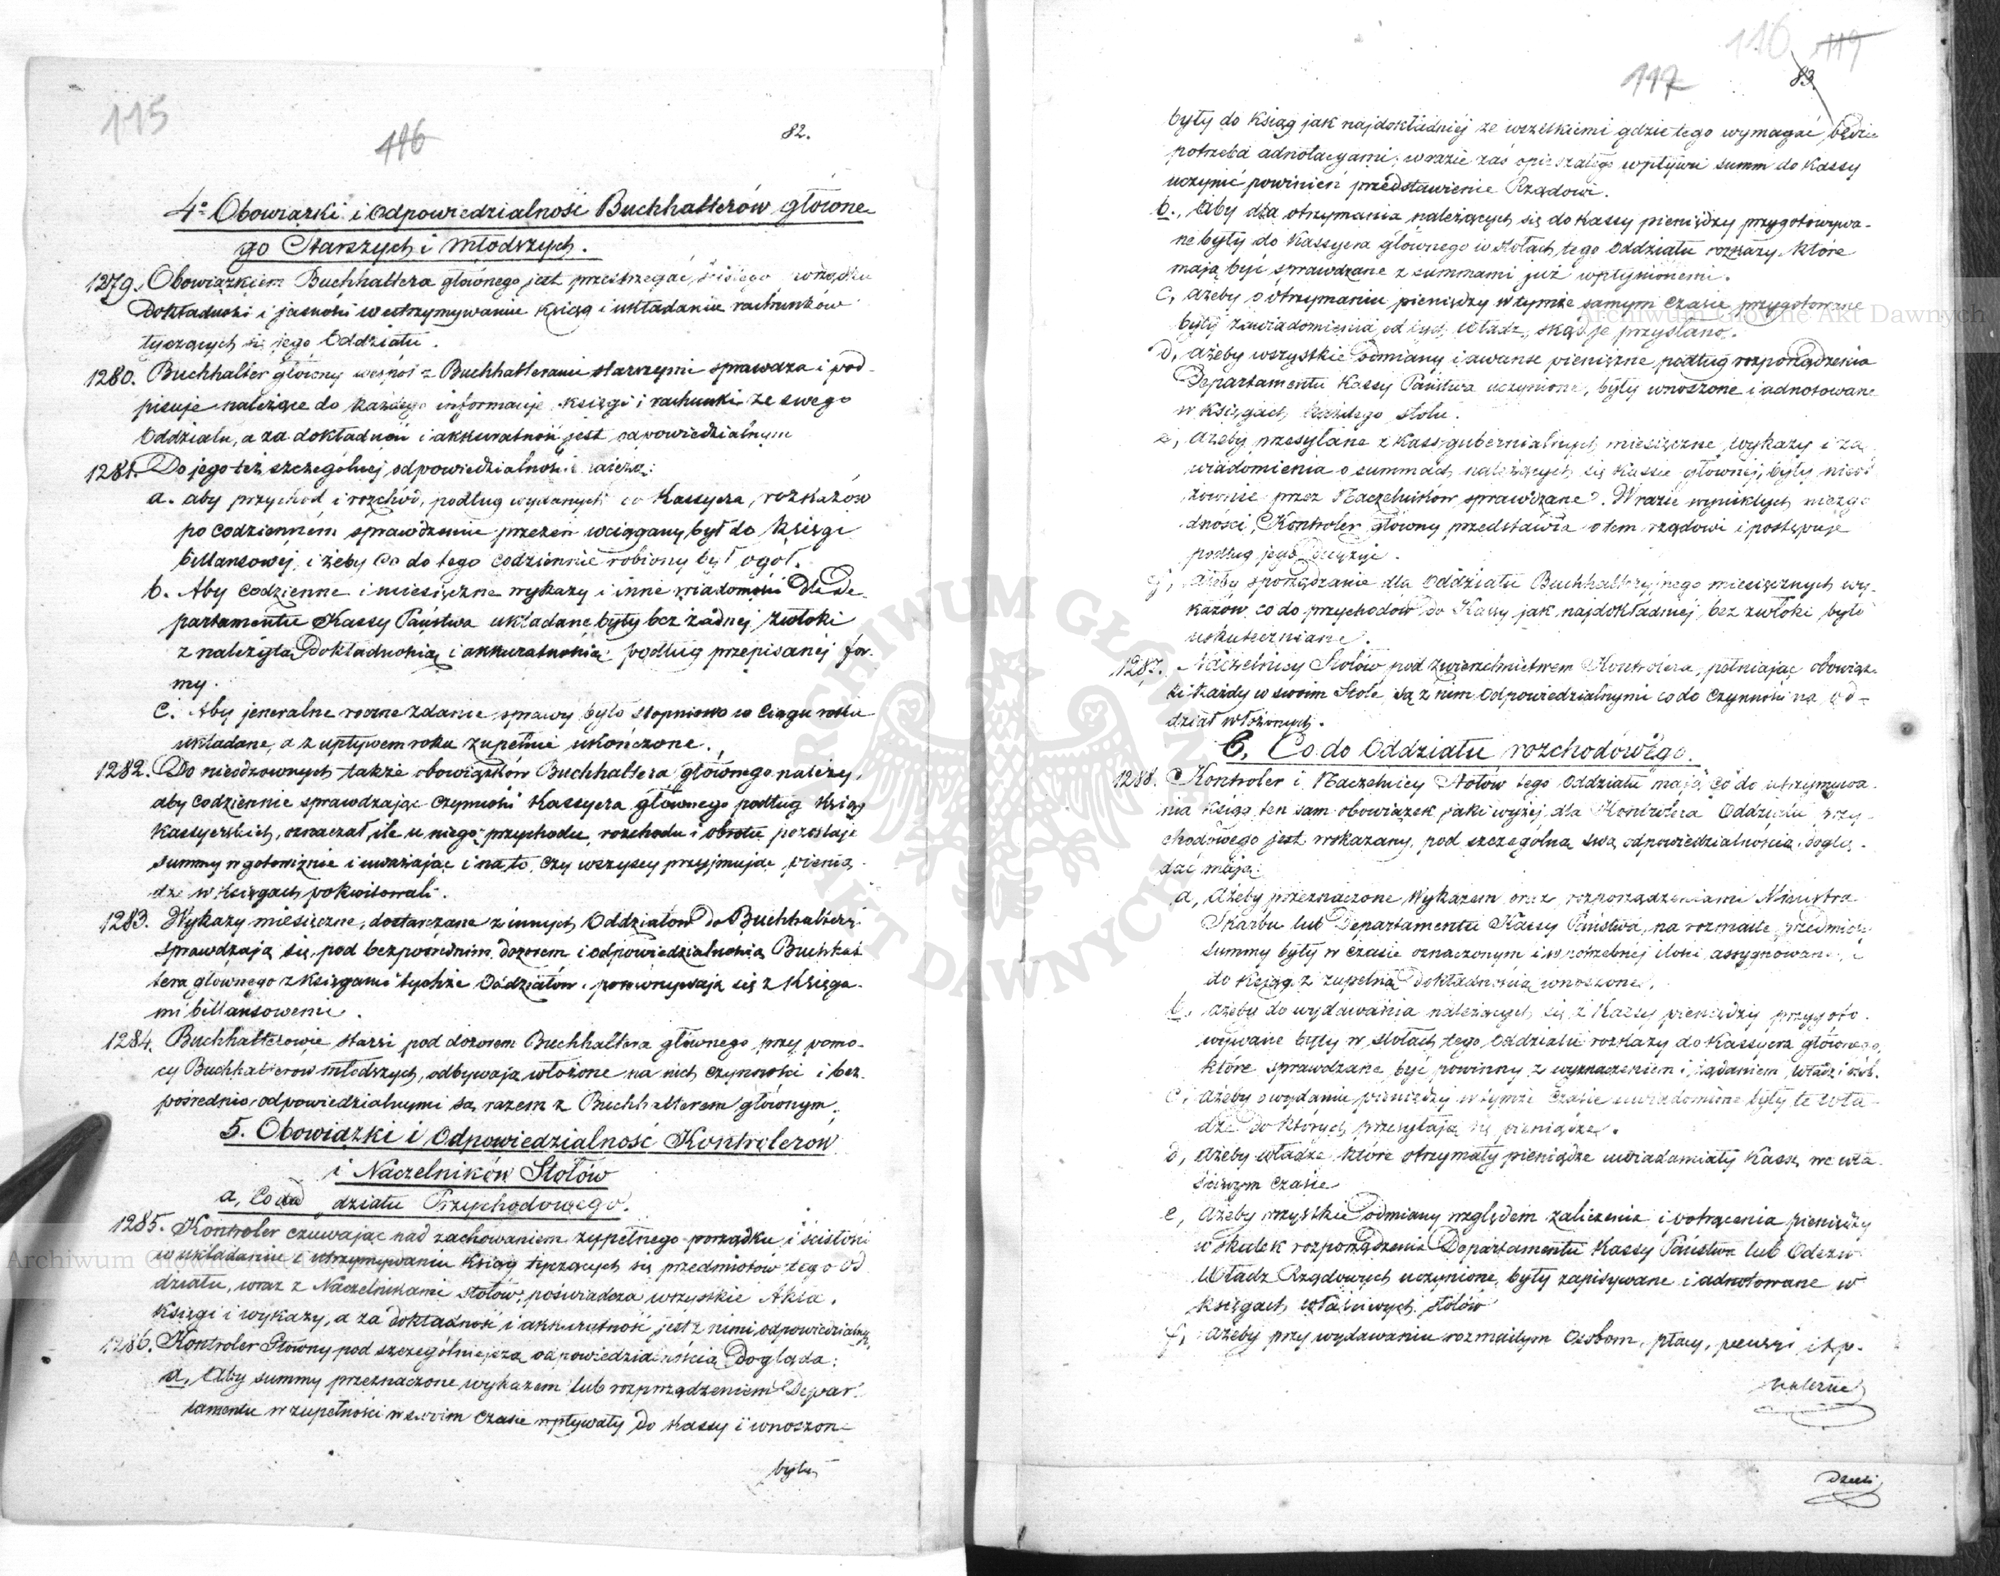 115
116
82.
4º Obowiązki i Odpowiedzialność Buchhalterów główne-
go Starszych i młodszych.
1279. Obowiązkiem Buchhaltera głównego jest przestrzegać, ścisłego
Dokładności i jasności w utrzymywaniu Ksiąg i układaniu rachunków
tyczących się jego Oddziału.
1280. Buchhalter główny wespół z Buchhalterami starszymi sprawdza i pod-
pisuje należące do każdego informacje, księgi i rachunki ze swego
Oddziału, a za dokładność i akkuratność jest odpowiedzialnym
1281. Do jego też szczególnej odpowiedzialności należą:
a. aby przychód i rozchód, podług wydanych do Kassyera, rozkazów
po codziennem sprawdzeniu przezeń wciągany był do Księgi
billansowej, i żeby co do tego codziennie robiony był ogół.
b. Aby codzienne i miesięczne wykazy i inne wiadomości dla De-
partamentu Kassy Państwa układane były bez żadnej zwłoki
z należytą Dokładnością i akkuratnością podług przepisanej for-
my.
c. Aby jeneralne roczne zdanie sprawy było stopniowo w ciągu roku
układane, a z upływem roku zupełnie ukończone.
1282. Do nieodzownych także obowiązków Buchhaltera głównego należy,
aby codziennie sprawdzając czynności Kassyera głównego podług Ksiąg
Kassyerskich, oznaczał ile u niego przychodu, rozchodu i obrotu pozostaje
summy w gotowiźnie i uważając i na to, czy wszyscy przyjmując pienią-
dze w Księgach pokwitowali.
1283. Wykazy miesięczne, dostarczane z innych Oddziałów do Buchhalteryi
sprawdzają się, pod bezpośrednim dozorem i odpowiedzialnością Buchhal-
tera głównego z Księgami tychże Oddziałów i porównywają się z Księga-
mi billansowemi.
1284. Buchhalterowie starsi pod dozorem Buchhaltera głównego, przy pomo-
cy Buchhalterów młodszych, odbywają włożone na nich czynności i bez-
pośrednio odpowiedzialnymi są razem z Buchhalterem głównym.
5. Obowiązki i Odpowiedzialność Kontrolerów
i Naczelników Stołów
a, Co do Oddziału Przychodowego.
1285. Kontroler czuwając nad zachowaniem zupełnego porządku i ścisłości
w układaniu i utrzymywaniu Ksiąg tyczących się przedmiotów tego Od
działu, wraz z Naczelnikami stołów, poświadcza wszystkie Akta,
Księgi i wykazy, a za dokładność i akkuratność jest z nimi odpowiedzialny.
1286. Kontroler Główny pod szczególniejszą odpowiedzialnością Dogląda:
a, Aby summy przeznaczone wykazem lub rozporządzeniem Depar-
tamentu w zupełności w swoim czasie wpływały do Kassy i wnoszone
były
116 119
117
83.
były do Ksiąg jak najdokładniej ze wszelkiemi gdzie tego wymagać będzie
potrzeba adnotacyami; w razie zaś opieszałego wpływu summ do Kassy
uczynić powinien przedstawienie Rządowi.
b., Aby dla otrzymania należących się do Kassy pieniędzy przygotowywa-
ne były do Kassyera głównego w Stołach tego Oddziału rozkazy, które
mają być sprawdzane z summami już wpłynionemi.
c, ażeby o otrzymaniu pieniędzy w tymże samym czasie przygotowane
były zawiadomienia od tych władz, skąd je przysłano.
d, ażeby wszystkie odmiany i awanse pieniężne, podług rozporządzenia
Departamentu Kassy Państwa uczynione, były wnoszone i adnotowane
w Księgach każdego stołu.
e, ażeby przesyłane z Kass gubernialnych, miesięczne, wykazy i za-
wiadomienia o summach, należących się Kassie głównej, były nieod-
zownie przez Naczelników sprawdzane. W razie wynikłych niezgo-
dności, Kontroler główny przedstawia o tem rządowi i postępuje
podług jego decyzyi.
f, ażeby sporządzanie dla Oddziału Buchhalteryjnego miesięcznych wy-
kazów co do przychodów do Kassy jak najdokładniej, bez zwłoki, było
uskuteczniane.
1287. Naczelnicy Stołów pod zwierzchnictwem Kontrolera, pełniając obowiąz-
ki Każdy w swoim Stole są z nim Odpowiedzialnymi co do czynności na od-
dział włożonych.
6, Co do Oddziału rozchodowego.
1288. Kontroler i Naczelnicy Stołów tego Oddziału mają, co do utrzymywa-
nia Ksiąg ten sam obowiązek jaki wyżej dla Kontrolera Oddziału przy-
chodowego jest wskazany, pod szczególną swą odpowiedzialnością doglą-
dać mają:
a, ażeby przeznaczone wykazem oraz rozporządzeniami Ministra
Skarbu lub Departamentu Kassy Państwa, na rozmaite przedmioty
summy były w czasie oznaczonym i w potrzebnej ilości assygnowane, i
do Ksiąg z zupełną dokładnością wnoszone.
b, ażeby do wydawania należących się z Kassy pieniędzy przygoto-
wywane były w stołach tego Oddziału rozkazy do Kassyera głównego,
które sprawdzane być powinny z wyznaczeniem i żądaniem, Władz i osób.
c, ażeby o wydaniu pieniędzy w tymże czasie uwiadomione były te wła-
dze do których przesyłają się pieniądze.
d, ażeby władze które otrzymały pieniądze uwiadamiały Kassę we wła-
ściwym czasie
e, ażeby wszystkie odmiany względem zaliczenia i potrącenia pieniędzy
w skutek rozporządzenia Departamentu Kassy Państwa lub Odezw
Władz Rządowych uczynione, były zapisywane i adnotowane w
Księgach właściwych stołów
f, ażeby przy wydawaniu rozmaitym Osobom, płacy, pensyi i t.p.
Archiwum Główne Akt Dawnych
Archiwum Główne Akt
ARCHIWUM GŁÓWNE AKT DAWNYCH